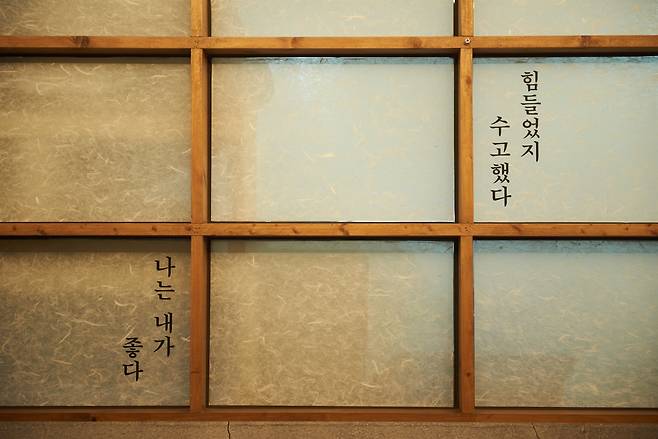 힘들었지
수고했다
나는 내가
좋다